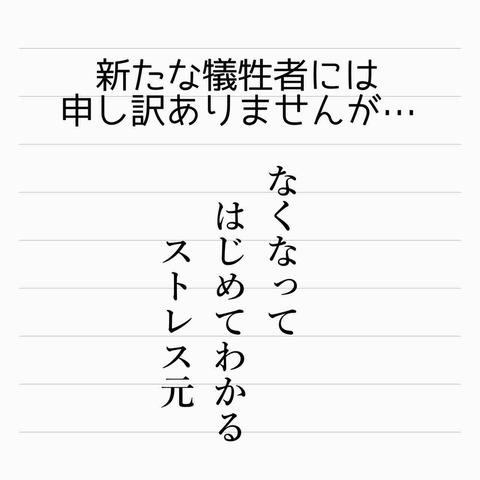 新たな犠牲者には
申し訳ありませんが…
なくなって
はじめてわかる
ストレス元